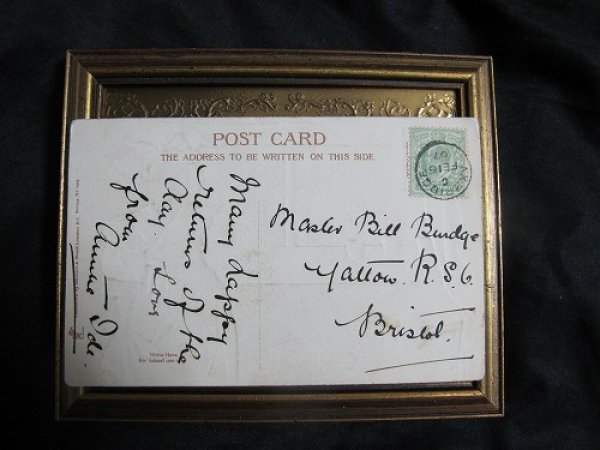 POST CARD
THE ADDRESS TO BE WRITTEN ON THIS SIDE.
Many happy
returns of the
day, Love
from
Annie
Master Bill Burdge
Yatton. R.S.O.
Bristol.
FE 16
07